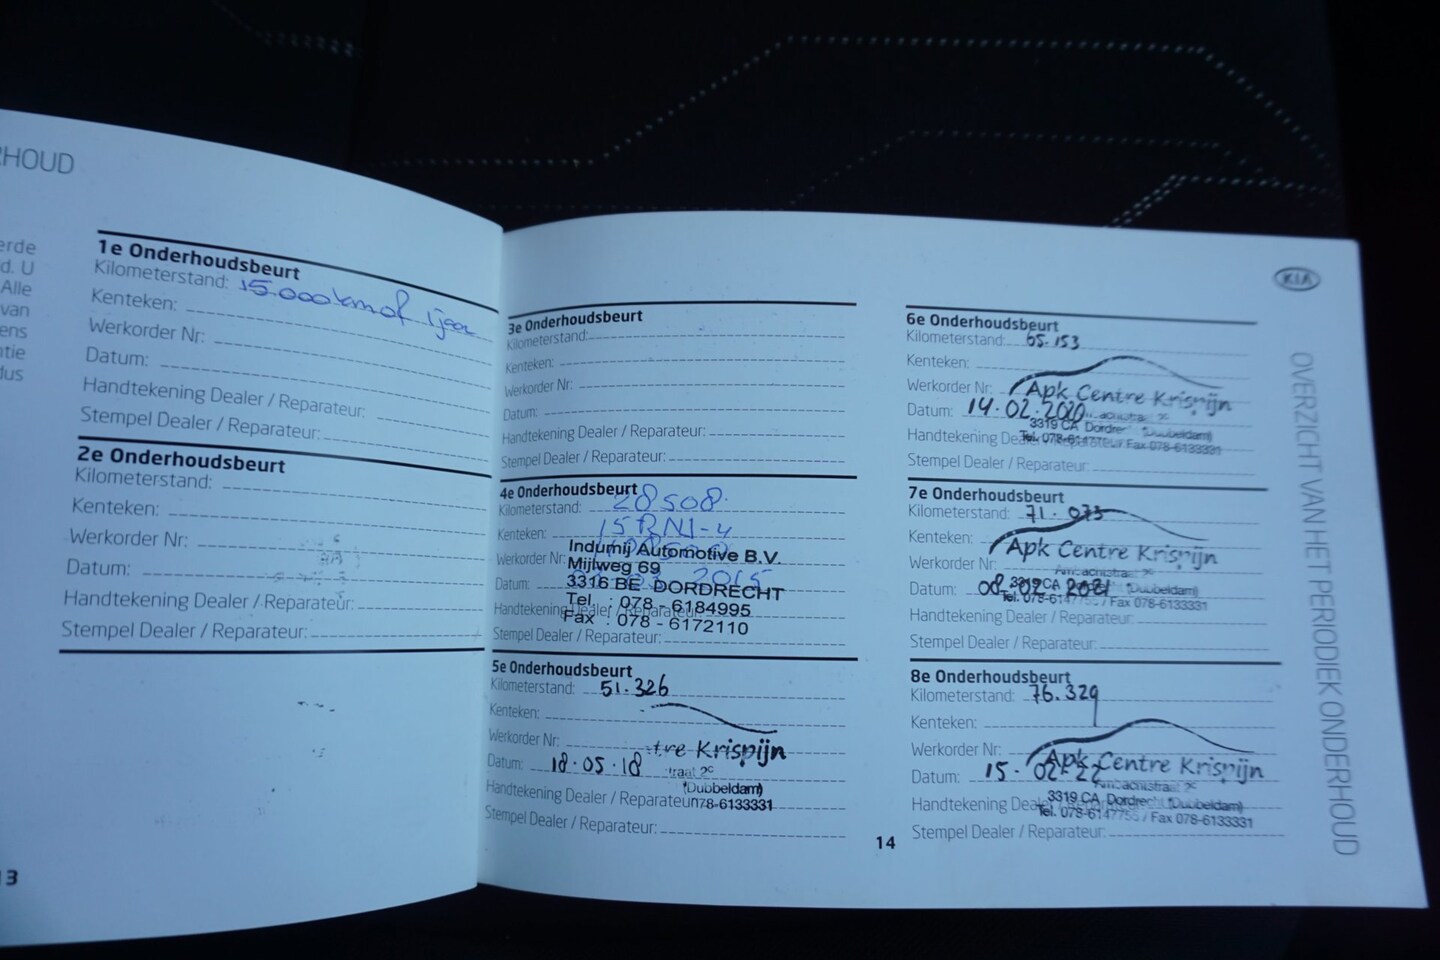 RHOUD
erde
d. U
Alle
van
ens
ntie
dus
1e Onderhoudsbeurt
Kilometerstand: 15.000km of 1 jaar
Kenteken:
Werkorder Nr:
Datum:
Handtekening Dealer / Reparateur:
Stempel Dealer / Reparateur:
2e Onderhoudsbeurt
Kilometerstand:
Kenteken:
Werkorder Nr:
Datum:
Handtekening Dealer / Reparateur:
Stempel Dealer / Reparateur:
13
3e Onderhoudsbeurt
Kilometerstand:
Kenteken:
Werkorder Nr:
Datum:
Handtekening Dealer / Reparateur:
Stempel Dealer / Reparateur:
4e Onderhoudsbeurt
Kilometerstand: 28508
Kenteken:
Werkorder Nr:
Indumij Automotive B.V.
Mijlweg 69
Datum: 2015
3316 BE DORDRECHT
Tel. : 078 - 6184995
Handtekening Dealer / Reparateur:
Fax : 078 - 6172110
Stempel Dealer / Reparateur:
5e Onderhoudsbeurt
Kilometerstand: 51.326
Kenteken:
Werkorder Nr: tre Krispijn
Datum: 18.05.18 traat 2c
(Dubbeldam)
Handtekening Dealer / Reparateur: 78-6133331
Stempel Dealer / Reparateur:
14
KIA
6e Onderhoudsbeurt
Kilometerstand: 65.153
Kenteken:
Werkorder Nr: Apk Centre Krispijn
Datum: 14.02.2020
3319 CA Dordrecht (Dubbeldam)
Handtekening Dealer / Reparateur:
Fax 078-6133331
Stempel Dealer / Reparateur:
7e Onderhoudsbeurt
Kilometerstand: 71.073
Kenteken:
Apk Centre Krispijn
Werkorder Nr:
Datum: 08.02.2021
3319 CA (Dubbeldam)
Fax 078-6133331
Handtekening Dealer / Reparateur:
Stempel Dealer / Reparateur:
8e Onderhoudsbeurt
Kilometerstand: 76.329
Kenteken:
Werkorder Nr:
Apk Centre Krispijn
Datum: 15.02.22
Ambachtstraat 2c
3319 CA Dordrecht (Dubbeldam)
Tel. 078-6147755 / Fax 078-6133331
Stempel Dealer / Reparateur:
OVERZICHT VAN HET PERIODIEK ONDERHOUD